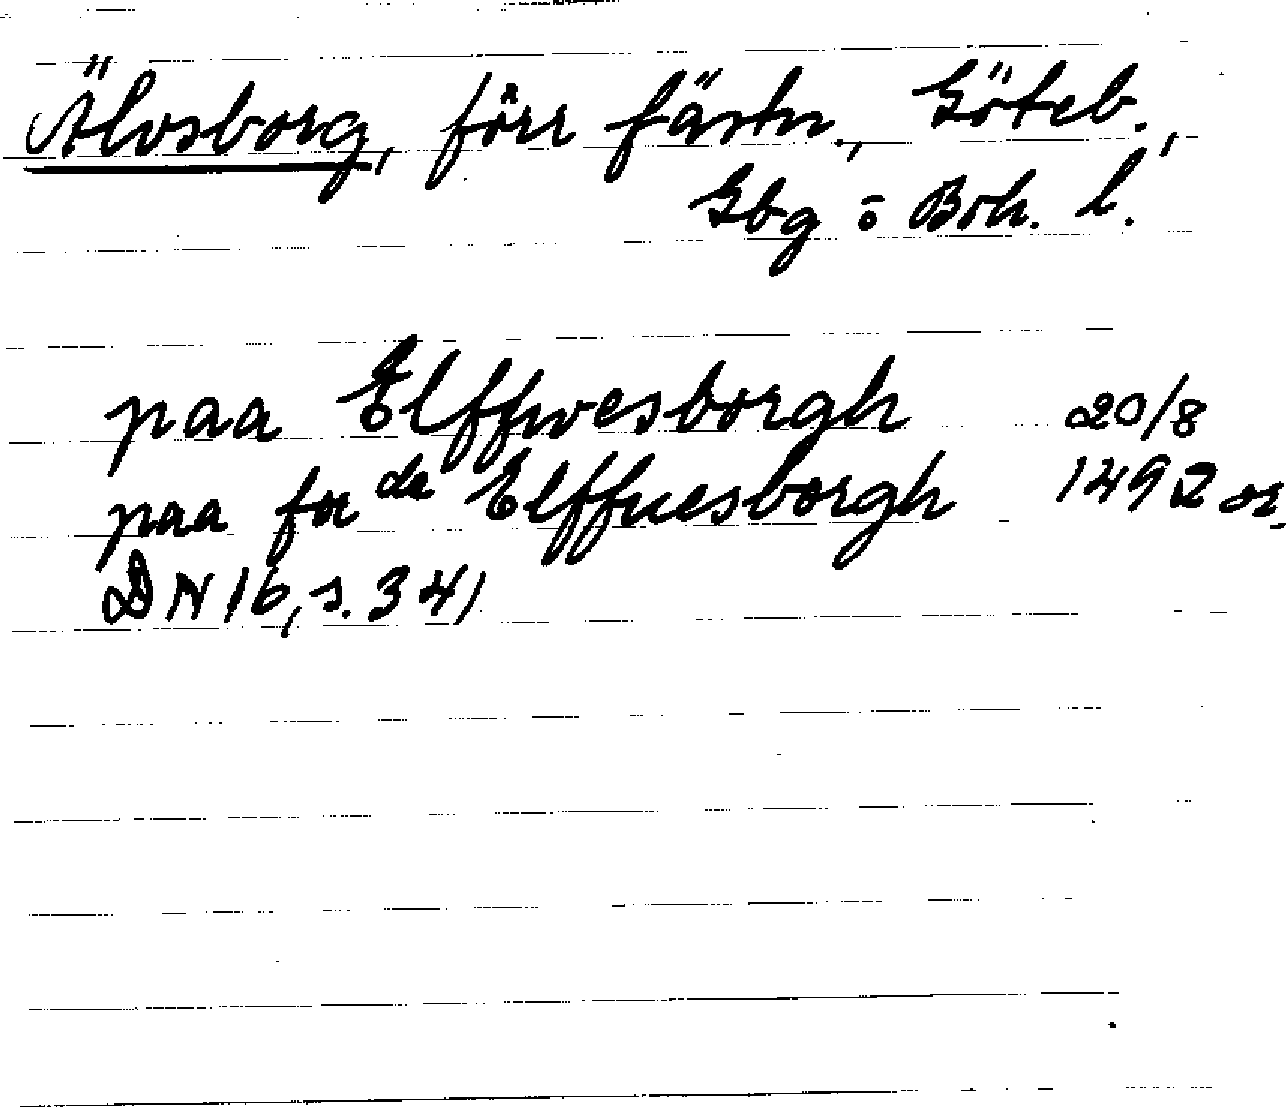 Älvsborg, förr fästn., Göteb.,
Gbg o Boh. l.
paa Elffwesborgh 20/8
paa for de Elffuesborgh 1492 or.
DN 16, s. 341